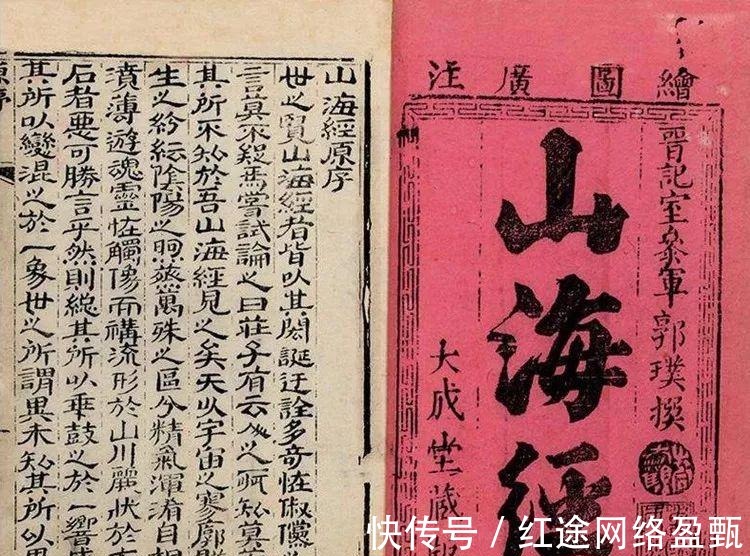 繪圖廣注
晉記室參軍郭璞撰
山海經
大成堂藏
山海經原序
世之覽山海經者皆以其閎誕迂誇多奇怪俶儻之
言莫不疑焉嘗試論之曰莊子有云人之所知莫
其所不知於吾山海經見之矣夫以宇宙之寥廓
生之紛紜陰陽之煦蒸萬殊之區分精氣渾淆自相
濆薄遊魂靈怪觸像而構流形於山川麗狀於
石者惡可勝言乎然則總其所以乖鼓之於一響成
其所以變混之於一象世之所謂異未知其所以異
原序
快传号 / 红途网络盈甄